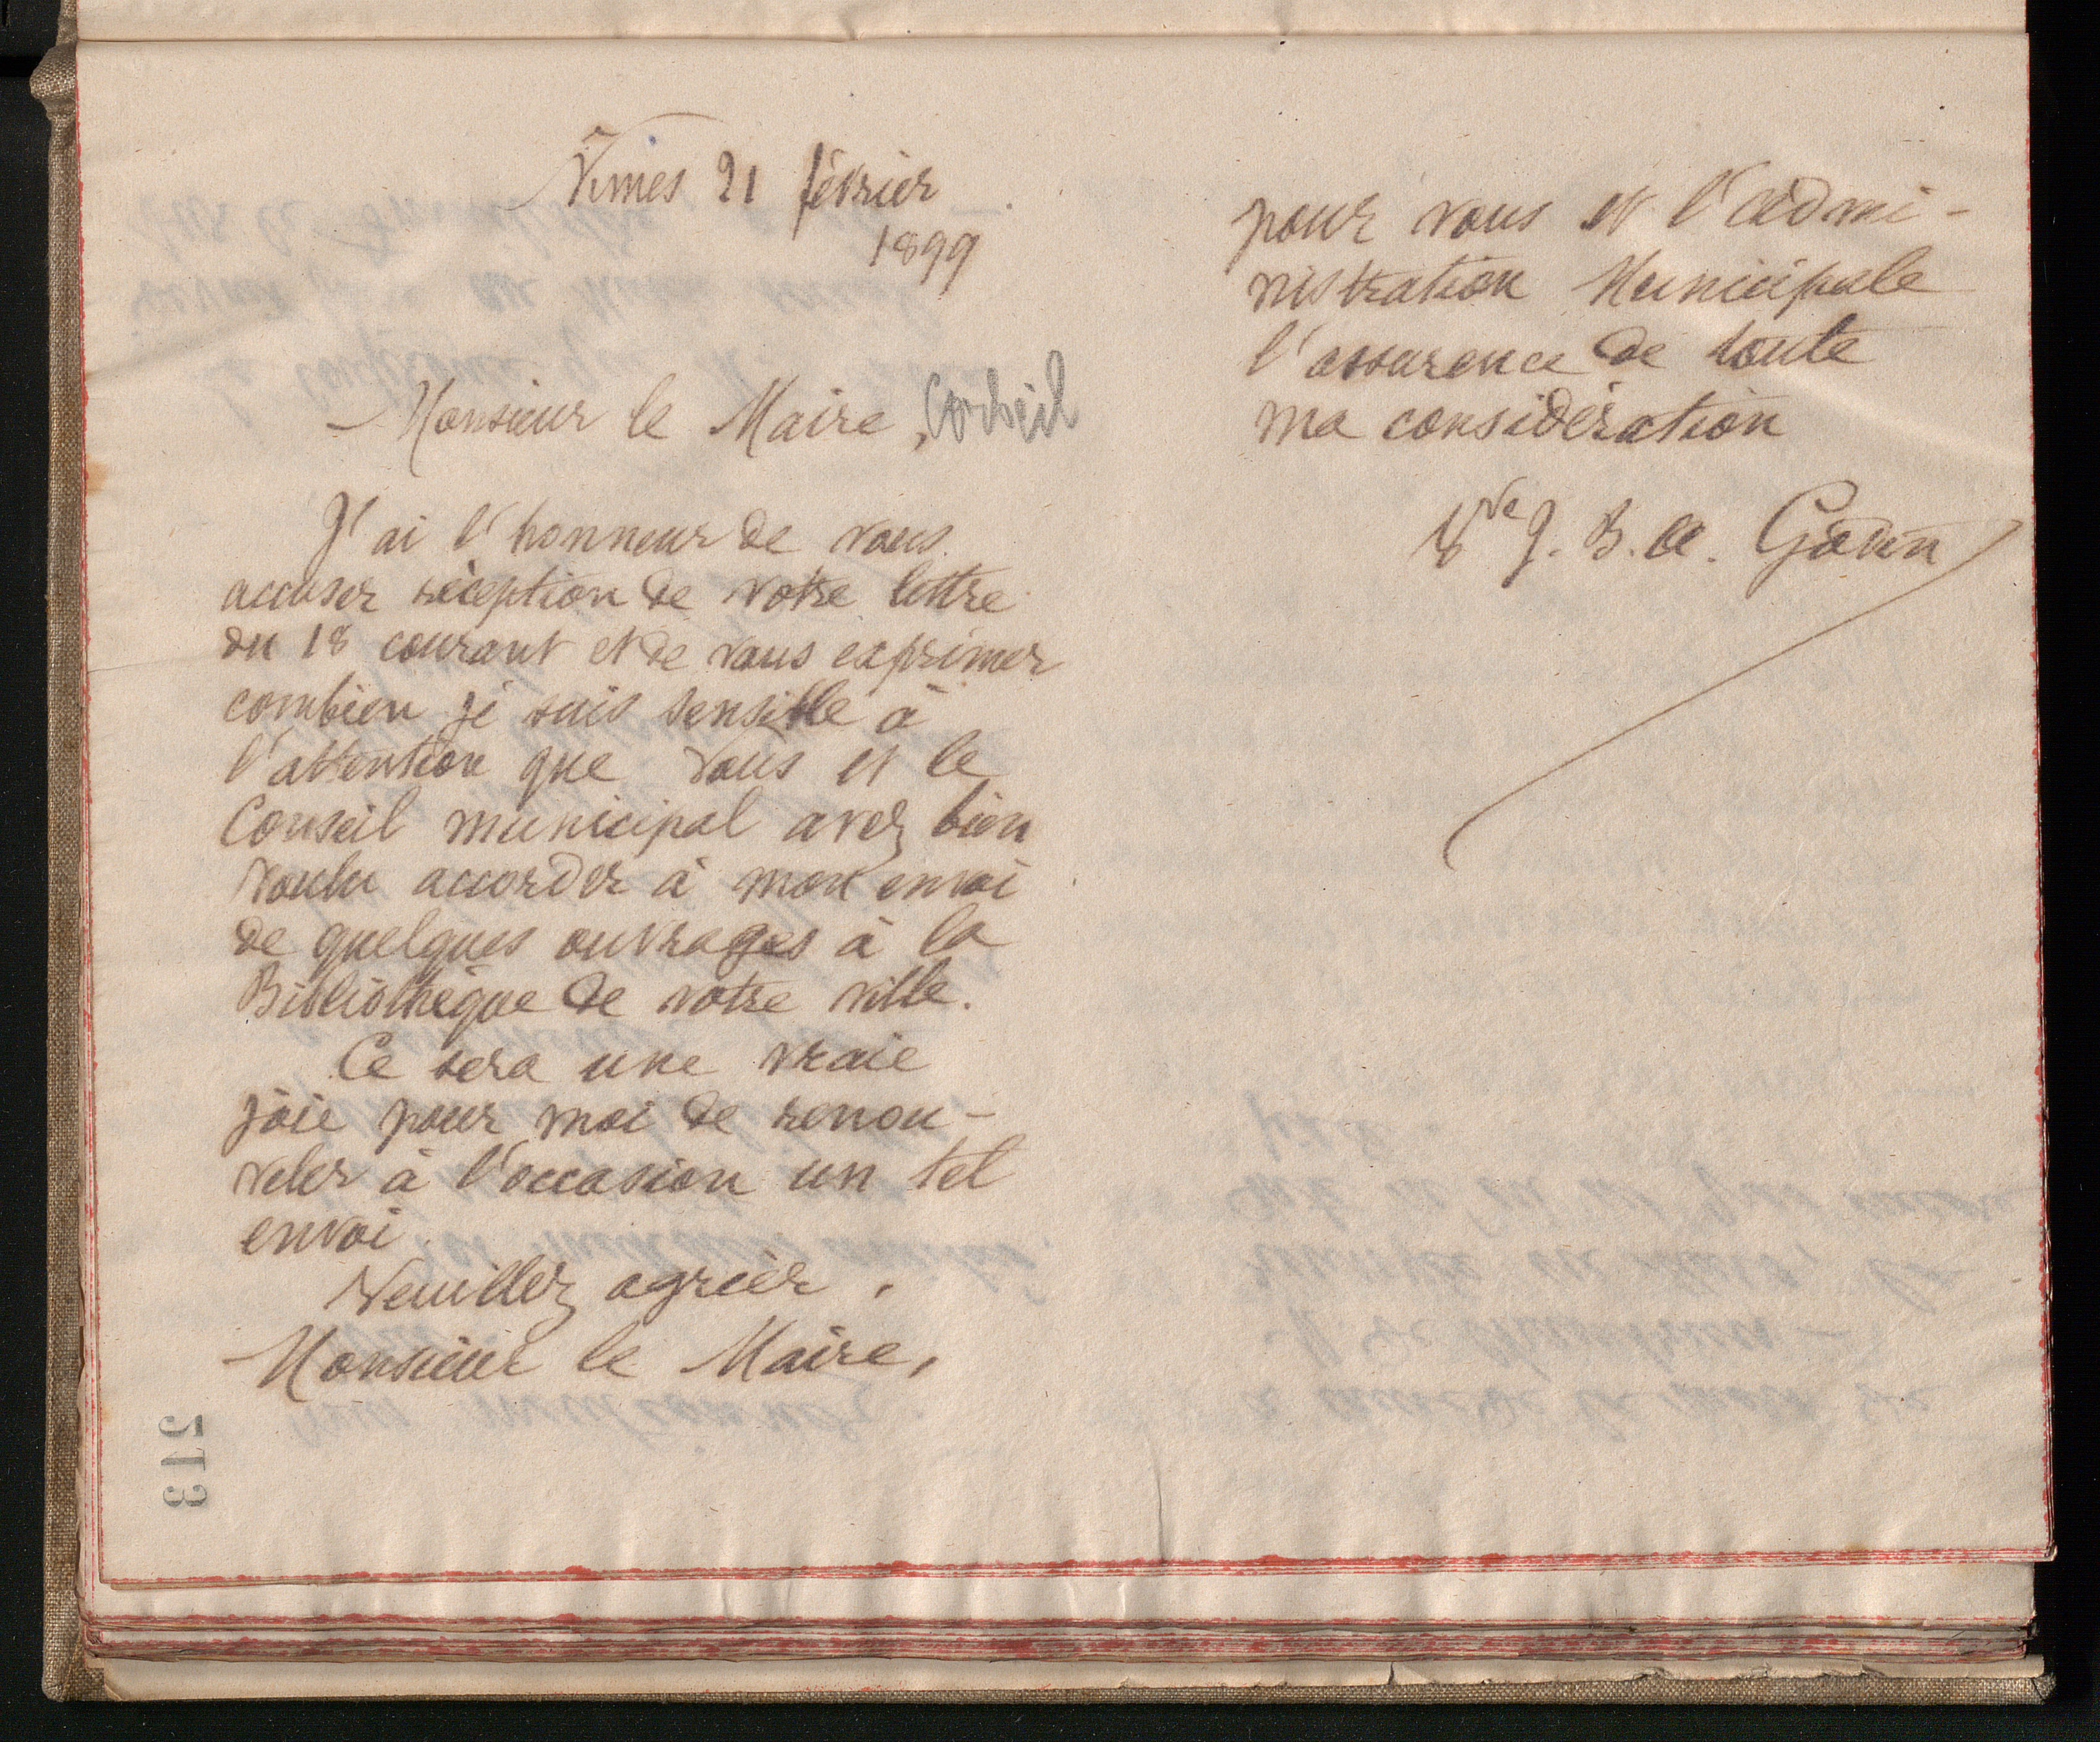 Nîmes 21 février
1899
Monsieur le Maire, Corbeil
J'ai l'honneur de vous
accuser réception de votre lettre
du 18 courant et de vous exprimer
combien je suis sensible à
l'attention que vous et le
Conseil municipal avez bien
voulu accorder à mon envoi
de quelques ouvrages à la
Bibliothèque de votre ville.
Ce sera une vraie
joie pour moi de renou-
veler à l'occasion un tel
envoi.
Veuillez agréer,
Monsieur le Maire,
pour vous et l'admi-
nistration Municipale
l'assurence de toute
ma considération
Vve J. B. A. Godin
213